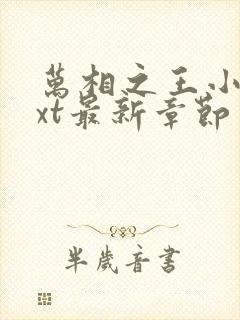 萬相之王小
xt最新章節
半歲音書